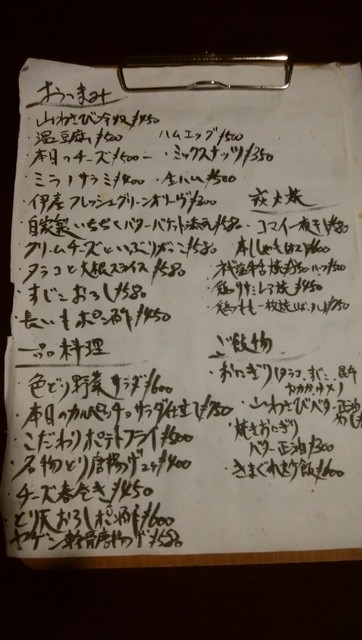 おつまみ
山わさび冷奴 ¥450
温豆腐 ¥500
ハムエッグ ¥500
本日のチーズ ¥500ー
ミックスナッツ ¥350
ミラノサラミ ¥400
¥500
伊産フレッシュグリーンオリーブ ¥300
自家製いちぢくバターバケット添え ¥580
クリームチーズといぶりがっこ ¥580
タラコと大根スライス ¥580
すじこおろし ¥580
長いもポン酢 ¥450
炭火焼
コマイ一夜干し ¥580
¥600
¥450 ハーフ ¥500
鶏ササミ焼 ¥450
鶏もも一枚焼 ¥750
一品料理
色どり野菜サラダ ¥600
本日のカルパッチョサラダ仕立て ¥750
こだわりポテトフライ ¥500
名物とり唐揚げ 2ヶ ¥400
チーズ春巻き ¥450
とり天おろしポン酢 ¥600
ヤゲン軟骨唐揚げ ¥580
ご飯物
おにぎり(タラコ、すじこ、昆布
山わさびバター正油
焼きおにぎり
バター正油 ¥300
きまぐれ ご飯 ¥600